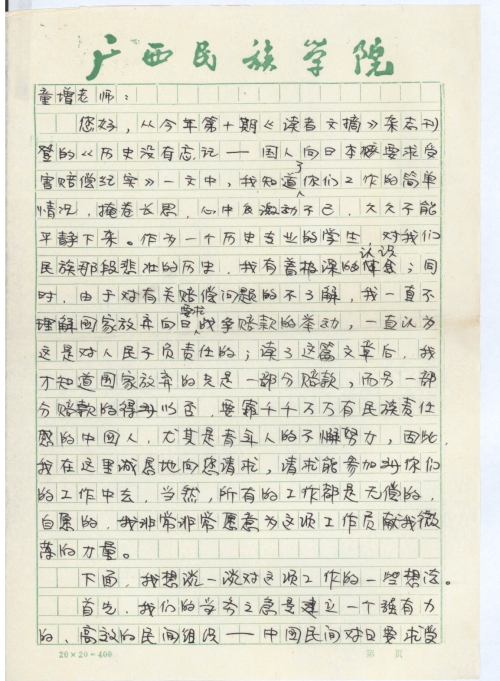 广西民族学院
童增老师：
您好，从今年第十期《读者文摘》杂志刊
登的《历史没有忘记——国人向日本要求受
害赔偿纪实》一文中，我知道了你们工作的简单
情况，掩卷长思，心中激动不已，久久不能
平静下来。作为一个历史专业的学生，对我们
民族那段悲壮的历史，我有着极深的认识；同
时，由于对有关赔偿问题的不了解，我一直不
理解国家放弃向日要求战争赔款的举动，一直认为
这是对人民不负责任的；读了这篇文章后，我
才知道国家放弃的只是一部分赔款，而另一部
分赔款的得到以否，要靠千千万万有民族责任
感的中国人，尤其是青年人的不懈努力，因此，
我在这里诚恳地向您请求，请求能参加到你们
的工作中去，当然，所有的工作都是无偿的，
自愿的，我非常非常愿意为这项工作贡献我微
薄的力量。
下面，我想谈一谈对这项工作的一些想法。
首先，我们的当务之急是建立一个强有力
的、高效的民间组织——中国民间对日要求受
20×20=400
第 页